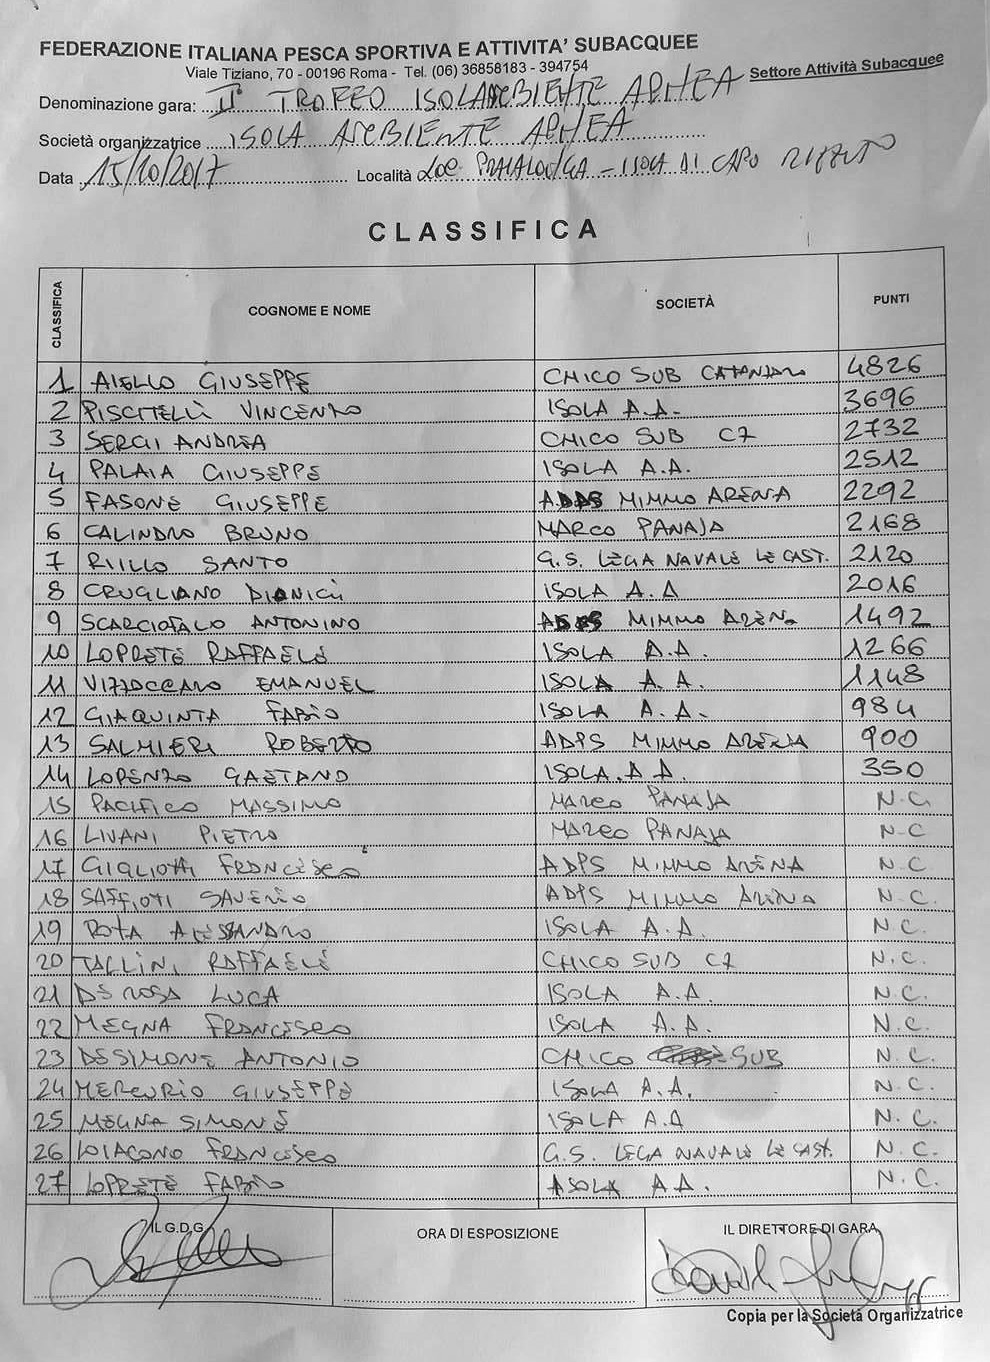 FEDERAZIONE ITALIANA PESCA SPORTIVA E ATTIVITA' SUBACQUEE
Viale Tiziano, 70 - 00196 Roma - Tel. (06) 36858183 - 394754
Settore Attività Subacquee
Denominazione gara: II° TROFEO ISOLAAMBIENTE APNEA
Società organizzatrice ISOLA AMBIENTE APNEA
Data 15/10/2017 Località LOC. PRAIALONGA - ISOLA DI CAPO RIZZUTO
CLASSIFICA
CLASSIFICA COGNOME E NOME SOCIETÀ PUNTI
1 AIELLO GIUSEPPE CHICO SUB CATANZARO 4826
2 PISCITELLI VINCENZO ISOLA A.A. 3696
3 SERGI ANDREA CHICO SUB CZ 2732
4 PALAIA GIUSEPPE ISOLA A.A. 2512
5 FASONE GIUSEPPE ADPS MIMMO ARENA 2292
6 CALINDRO BRUNO MARCO PANAJA 2168
7 RIILLO SANTO G.S. LEGA NAVALE LE CAST. 2120
8 CRUGLIANO DIONIGI ISOLA A.A 2016
9 SCARCIOFALO ANTONINO ADPS MIMMO ARENA 1492
10 LOPRETE RAFFAELE ISOLA A.A. 1266
11 VIZZACCARO EMANUEL ISOLA A.A. 1148
12 GIAQUINTA FABIO ISOLA A.A. 984
13 SALMIERI ROBERTO ADPS MIMMO ARENA 900
14 LORENZO GAETANO ISOLA.A A. 350
15 PACIFICO MASSIMO MARCO PANAJA N.C.
16 LIVANI PIETRO MARCO PANAJA N.C
17 GIGLIOTTI FRANCESCO ADPS MIMMO ARENA N.C
18 SAFFIOTI SAVERIO ADPS MIMMO ARENA N.C.
19 ROTA ALESSANDRO ISOLA A.A. N.C.
20 TALLINI RAFFAELE CHICO SUB CZ N.C.
21 DE ROSA LUCA ISOLA A.A. N.C.
22 MEGNA FRANCESCO ISOLA A.A. N.C.
23 DESIMONE ANTONIO CHICO SUB N.C.
24 MERCURIO GIUSEPPE ISOLA A.A. N.C.
25 MEGNA SIMONE ISOLA A.A N.C.
26 LOIACONO FRANCESCO G.S. LEGA NAVALE LE CAST. N.C.
27 LOPRETE FABIO ISOLA A.A. N.C.
IL G.D.G. ORA DI ESPOSIZIONE IL DIRETTORE DI GARA
Copia per la Società Organizzatrice